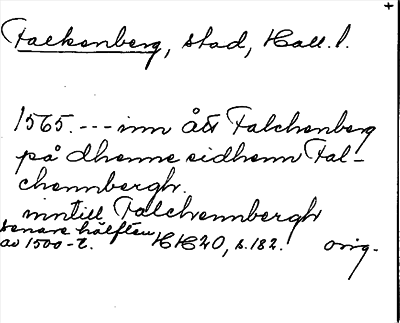 +
Falkenberg, stad, Hall. l.
1565. --- inn åth Falchenberg
på dhenne sidhenn Fal-
chennbergh.
inntill Falchennbergh
senare hälften
av 1500-t. HH20, s. 182. orig.